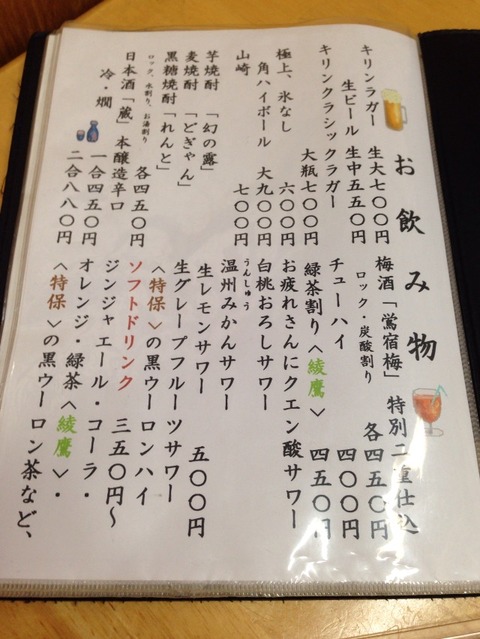 お飲み物
キリンラガー
生ビール 生大七〇〇円
生中五五〇円
キリンクラシックラガー
大瓶七〇〇円
極上、氷なし
角ハイボール 六〇〇円
大九〇〇円
山崎 七〇〇円
芋焼酎 「幻の露」
麦焼酎 「どぎゃん」
黒糖焼酎 「れんと」
ロック、水割り、お湯割り
各四五〇円
日本酒「蔵」 本醸造辛口
冷・燗 一合四五〇円
二合八八〇円
梅酒「鶯宿梅」 特別二重仕込
ロック・炭酸割り
各四五〇円
チューハイ 四〇〇円
緑茶割り〈綾鷹〉 四五〇円
お疲れさんにクエン酸サワー
白桃おろしサワー
うんしゅう
温州みかんサワー
生レモンサワー 五〇〇円
生グレープフルーツサワー
〈特保〉の黒ウーロンハイ
ソフトドリンク 三五〇円〜
ジンジャエール・コーラ・
オレンジ・緑茶〈綾鷹〉・
〈特保〉の黒ウーロン茶など、